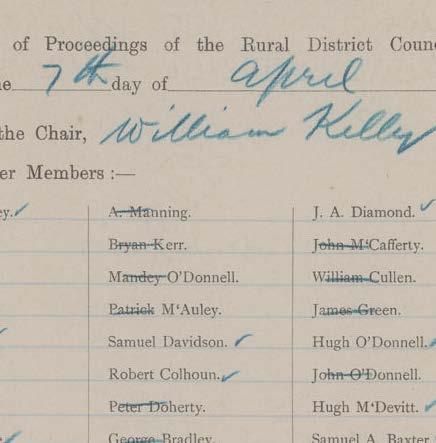 of Proceedings of the Rural District Coun
7th day of April
the Chair, William Kelly
er Members :—
ey. A. Manning. J. A. Diamond.
Bryan Kerr. John M‘Cafferty.
Mandey O’Donnell. William Cullen.
Patrick M‘Auley. James Green.
Samuel Davidson. Hugh O’Donnell.
Robert Colhoun. John O’Donnell.
Peter Doherty. Hugh M‘Devitt.
George Bradley. Samuel A. Baxter